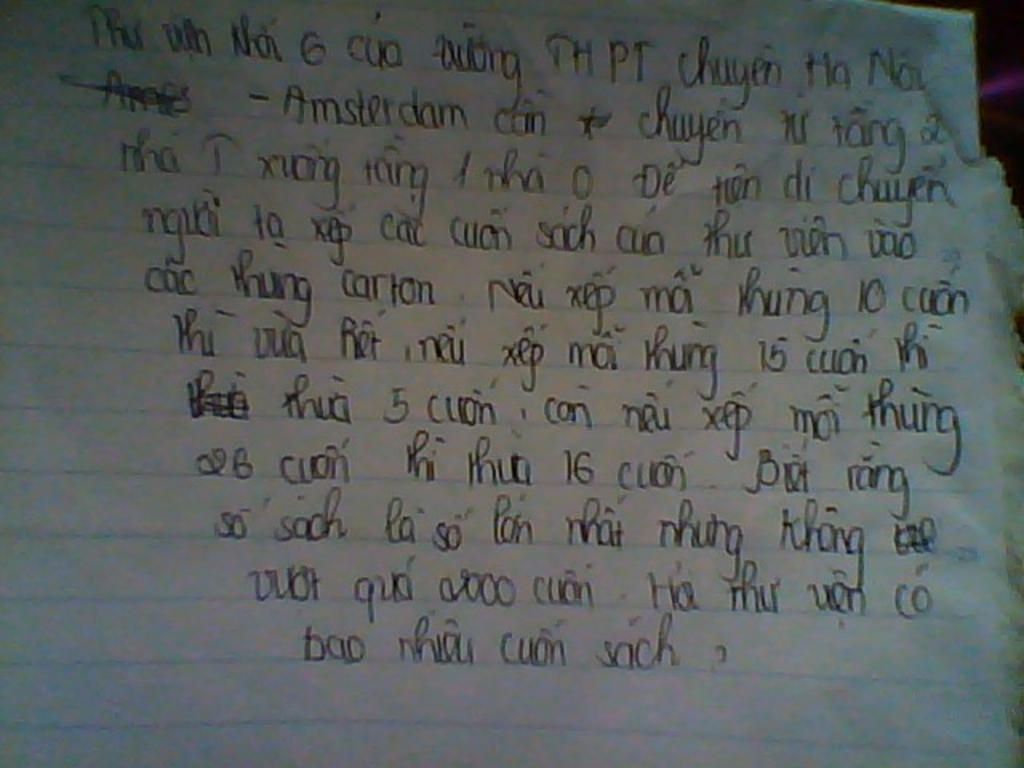 Thư viện khối 6 của trường THPT chuyên Hà Nội
- Amsterdam cần chuyển từ tầng 2
nhà T xuống tầng 1 nhà O Để tiện di chuyển
người ta xếp các cuốn sách của thư viện vào
các thùng carton. Nếu xếp mỗi thùng 10 cuốn
thì vừa hết, nếu xếp mỗi thùng 15 cuốn thì
thừa 5 cuốn, còn nếu xếp mỗi thùng
26 cuốn thì thừa 16 cuốn. Biết rằng
số sách là số lớn nhất nhưng không
vượt quá 2000 cuốn. Hỏi thư viện có
bao nhiêu cuốn sách?